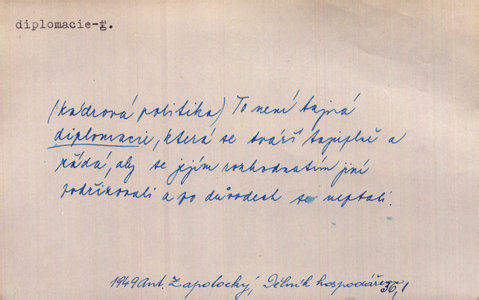 diplomacie-g.
(Kádrová politika) To není tajná
diplomacie, která se tváří tajuplně a
žádá, aby se jejím rozhodnutím jiní
podřizovali a po důvodech se neptali.
1949 Ant. Zápotocký, Dělník hospodářem
36,1